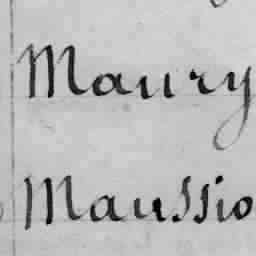 Maury
Maussio